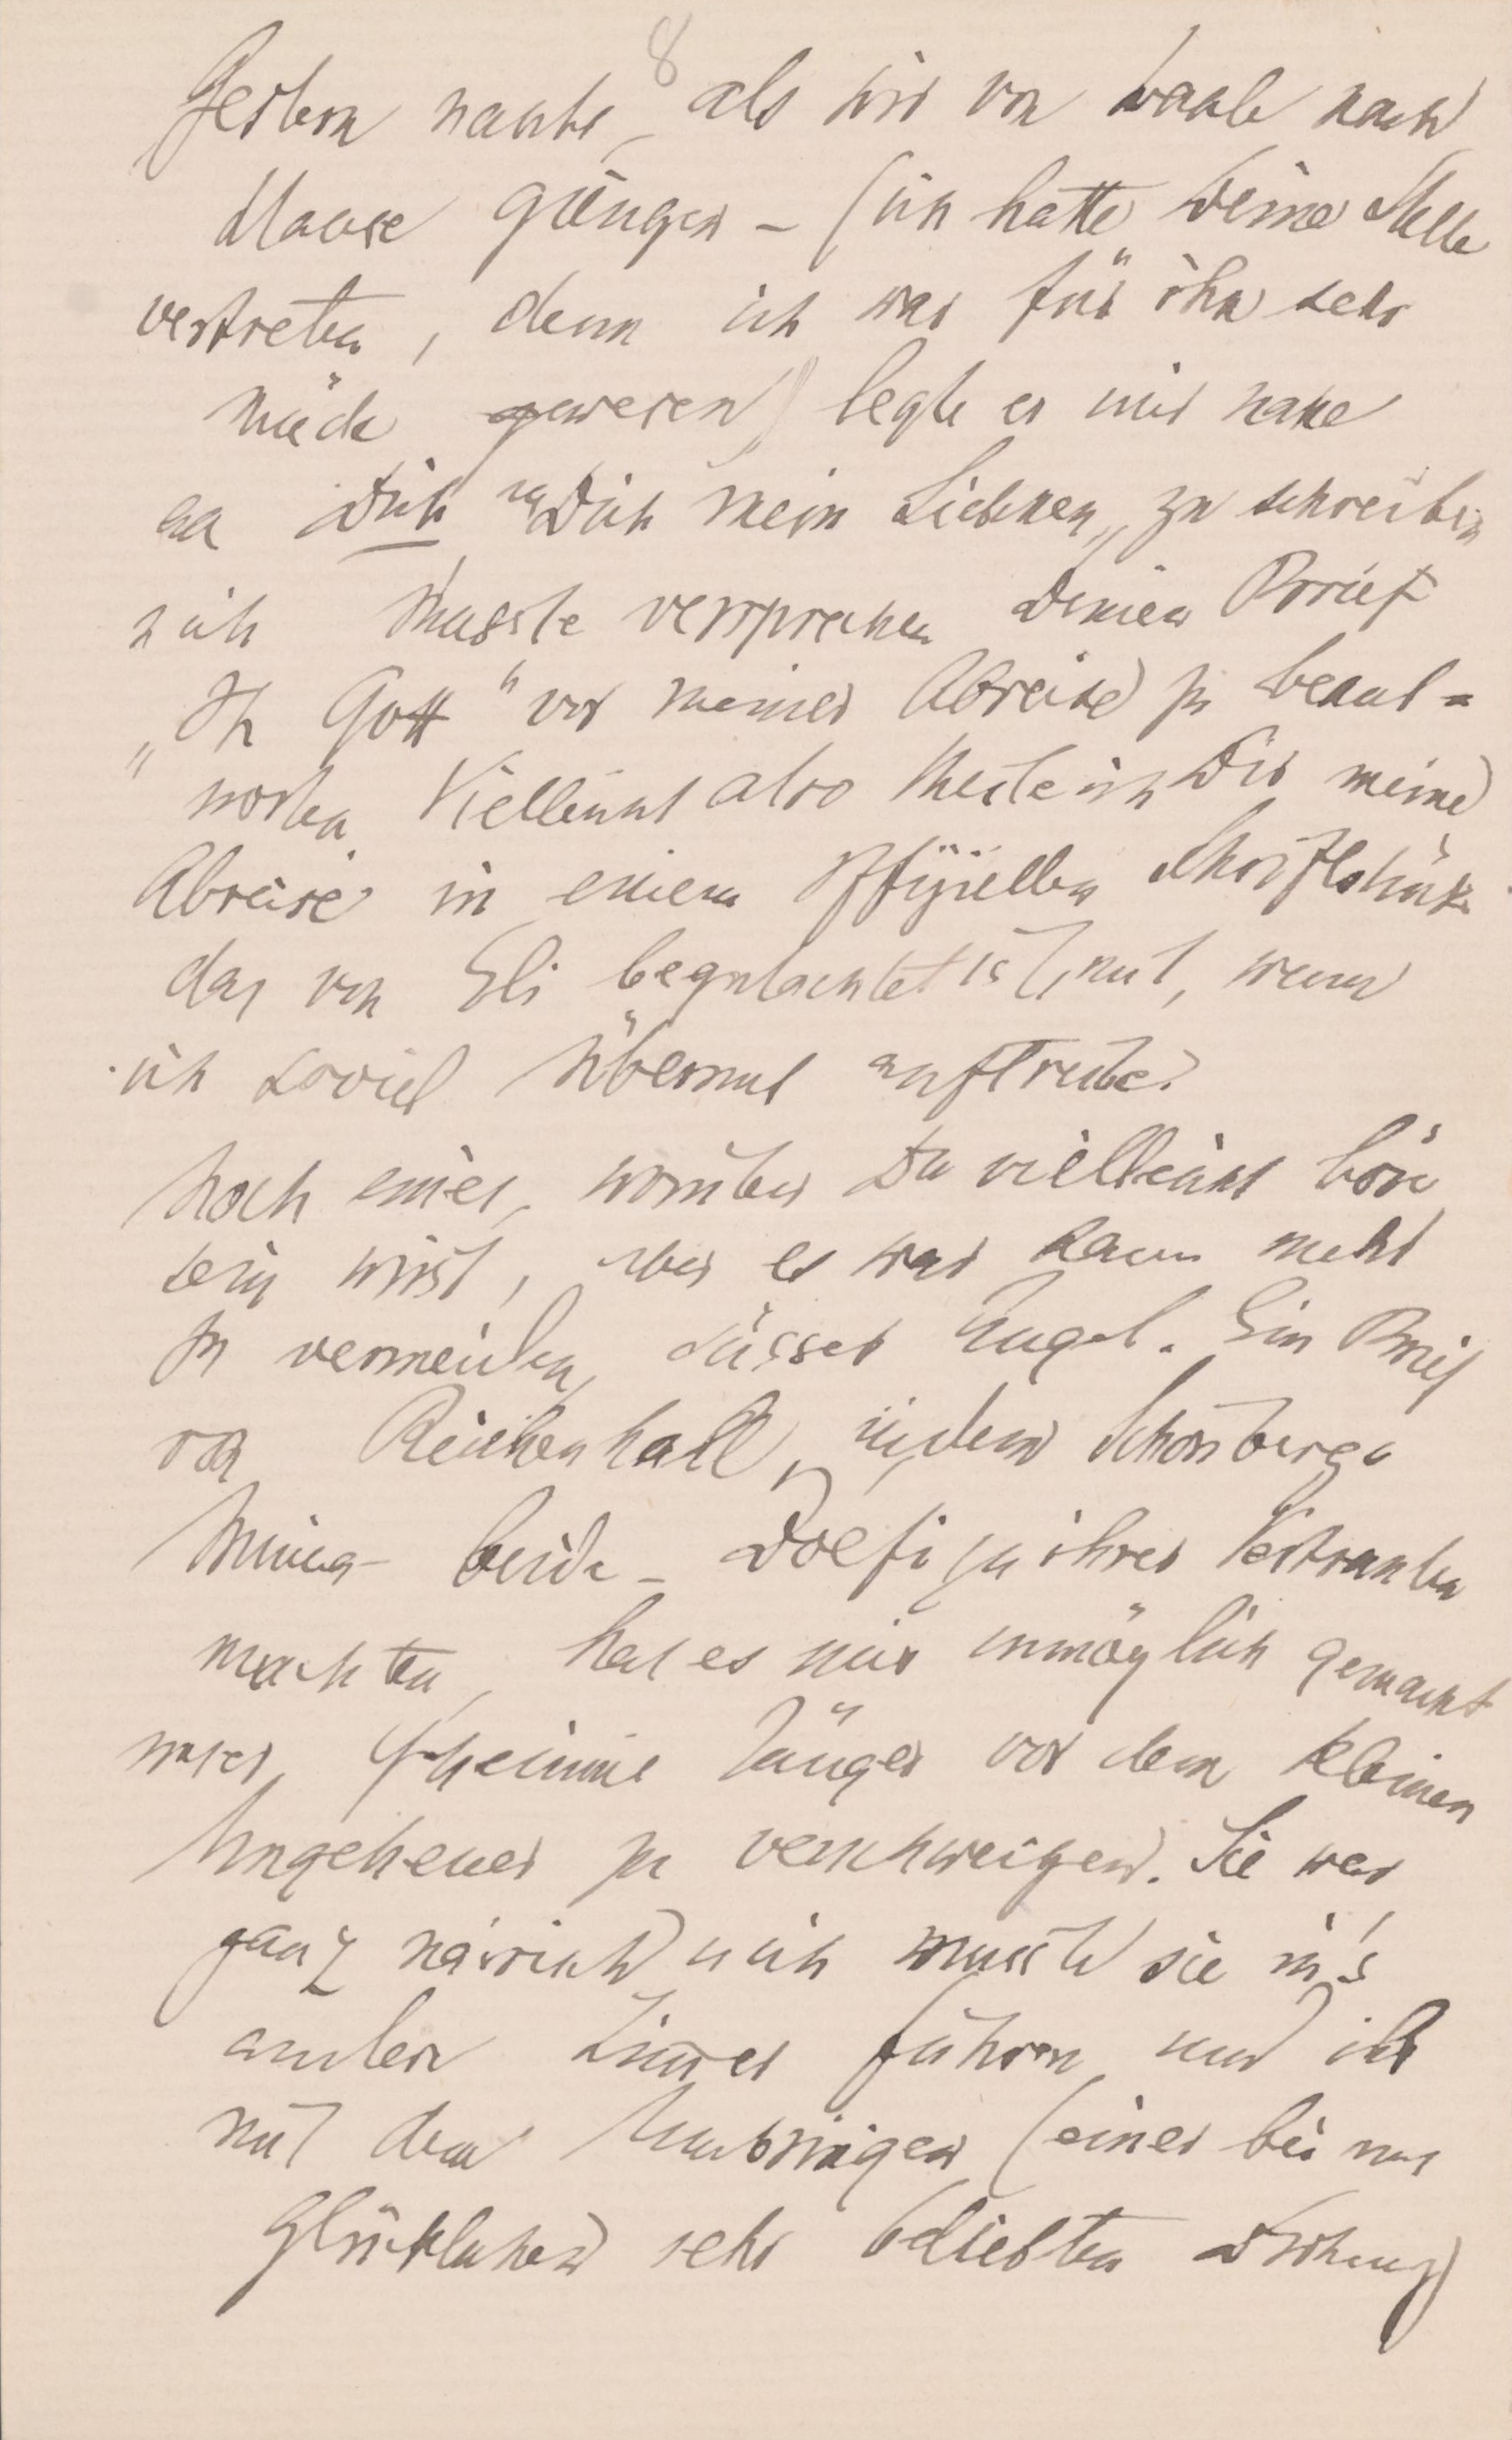 8
Gestern nachts, als wir von Wahle nach
Hause giengen – (ich hatte Deine Stelle
vertreten, denn ich war für ihn sehr
müde gewesen) legte er mir nahe
an Dich "an Dich mein Liebchen" zu schreiben
u ich musste versprechen Deinen Brief
„In Gott" vor meiner Abreise zu beant=
worten. Vielleicht also theile ich Dir meine
Abreise in einem offiziellen Schriftstück
das von Eli begutachtet ist, mit, wenn
ich soviel Übermut auftreibe.
Noch eines, worüber Du vielleicht böse
sein wirst, aber es war kaum mehr
zu vermeiden, süsser Engel. Ein Brief
von Reichenhall, in dem Schönberger
beide – Dolfi zu ihrer Vertrauten
machten, hat es mir unmöglich gemacht
unser Geheimnis länger vor dem kleinen
Ungeheuer zu verschweigen. Sie war
ganz närrisch u ich musste sie in's
andere Zimmer führen und ihr
mit dem Umbringen (einer bei uns
Glücklichen sehr beliebten Drohung)